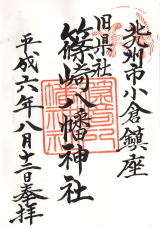 北州市小倉鎮座
旧県社
篠崎八幡神社
平成六年八月十二日奉拝